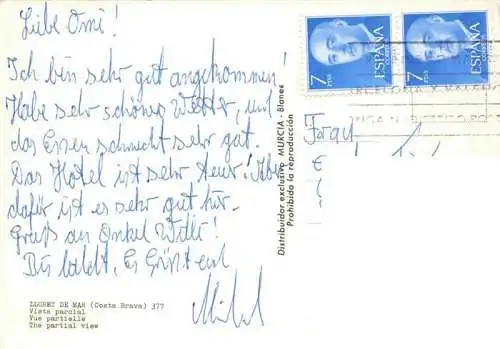 Liebe Omi!
Ich bin sehr gut angekommen!
Habe sehr schönes Wetter, und
das Essen schmeckt sehr gut.
Das Hotel ist sehr teuer! Aber
dafür ist es sehr gut hier.
Gruß an Onkel Willi!
Bis bald, Es Grüßt euch
LLORET DE MAR (Costa Brava) 377
Vista parcial
Vue partielle
The partial view
Distribuidor exclusivo MURCIA - Blanes
Prohibida la reproducción
7 PTAS ESPAÑA CORREOS
7 PTAS ESPAÑA